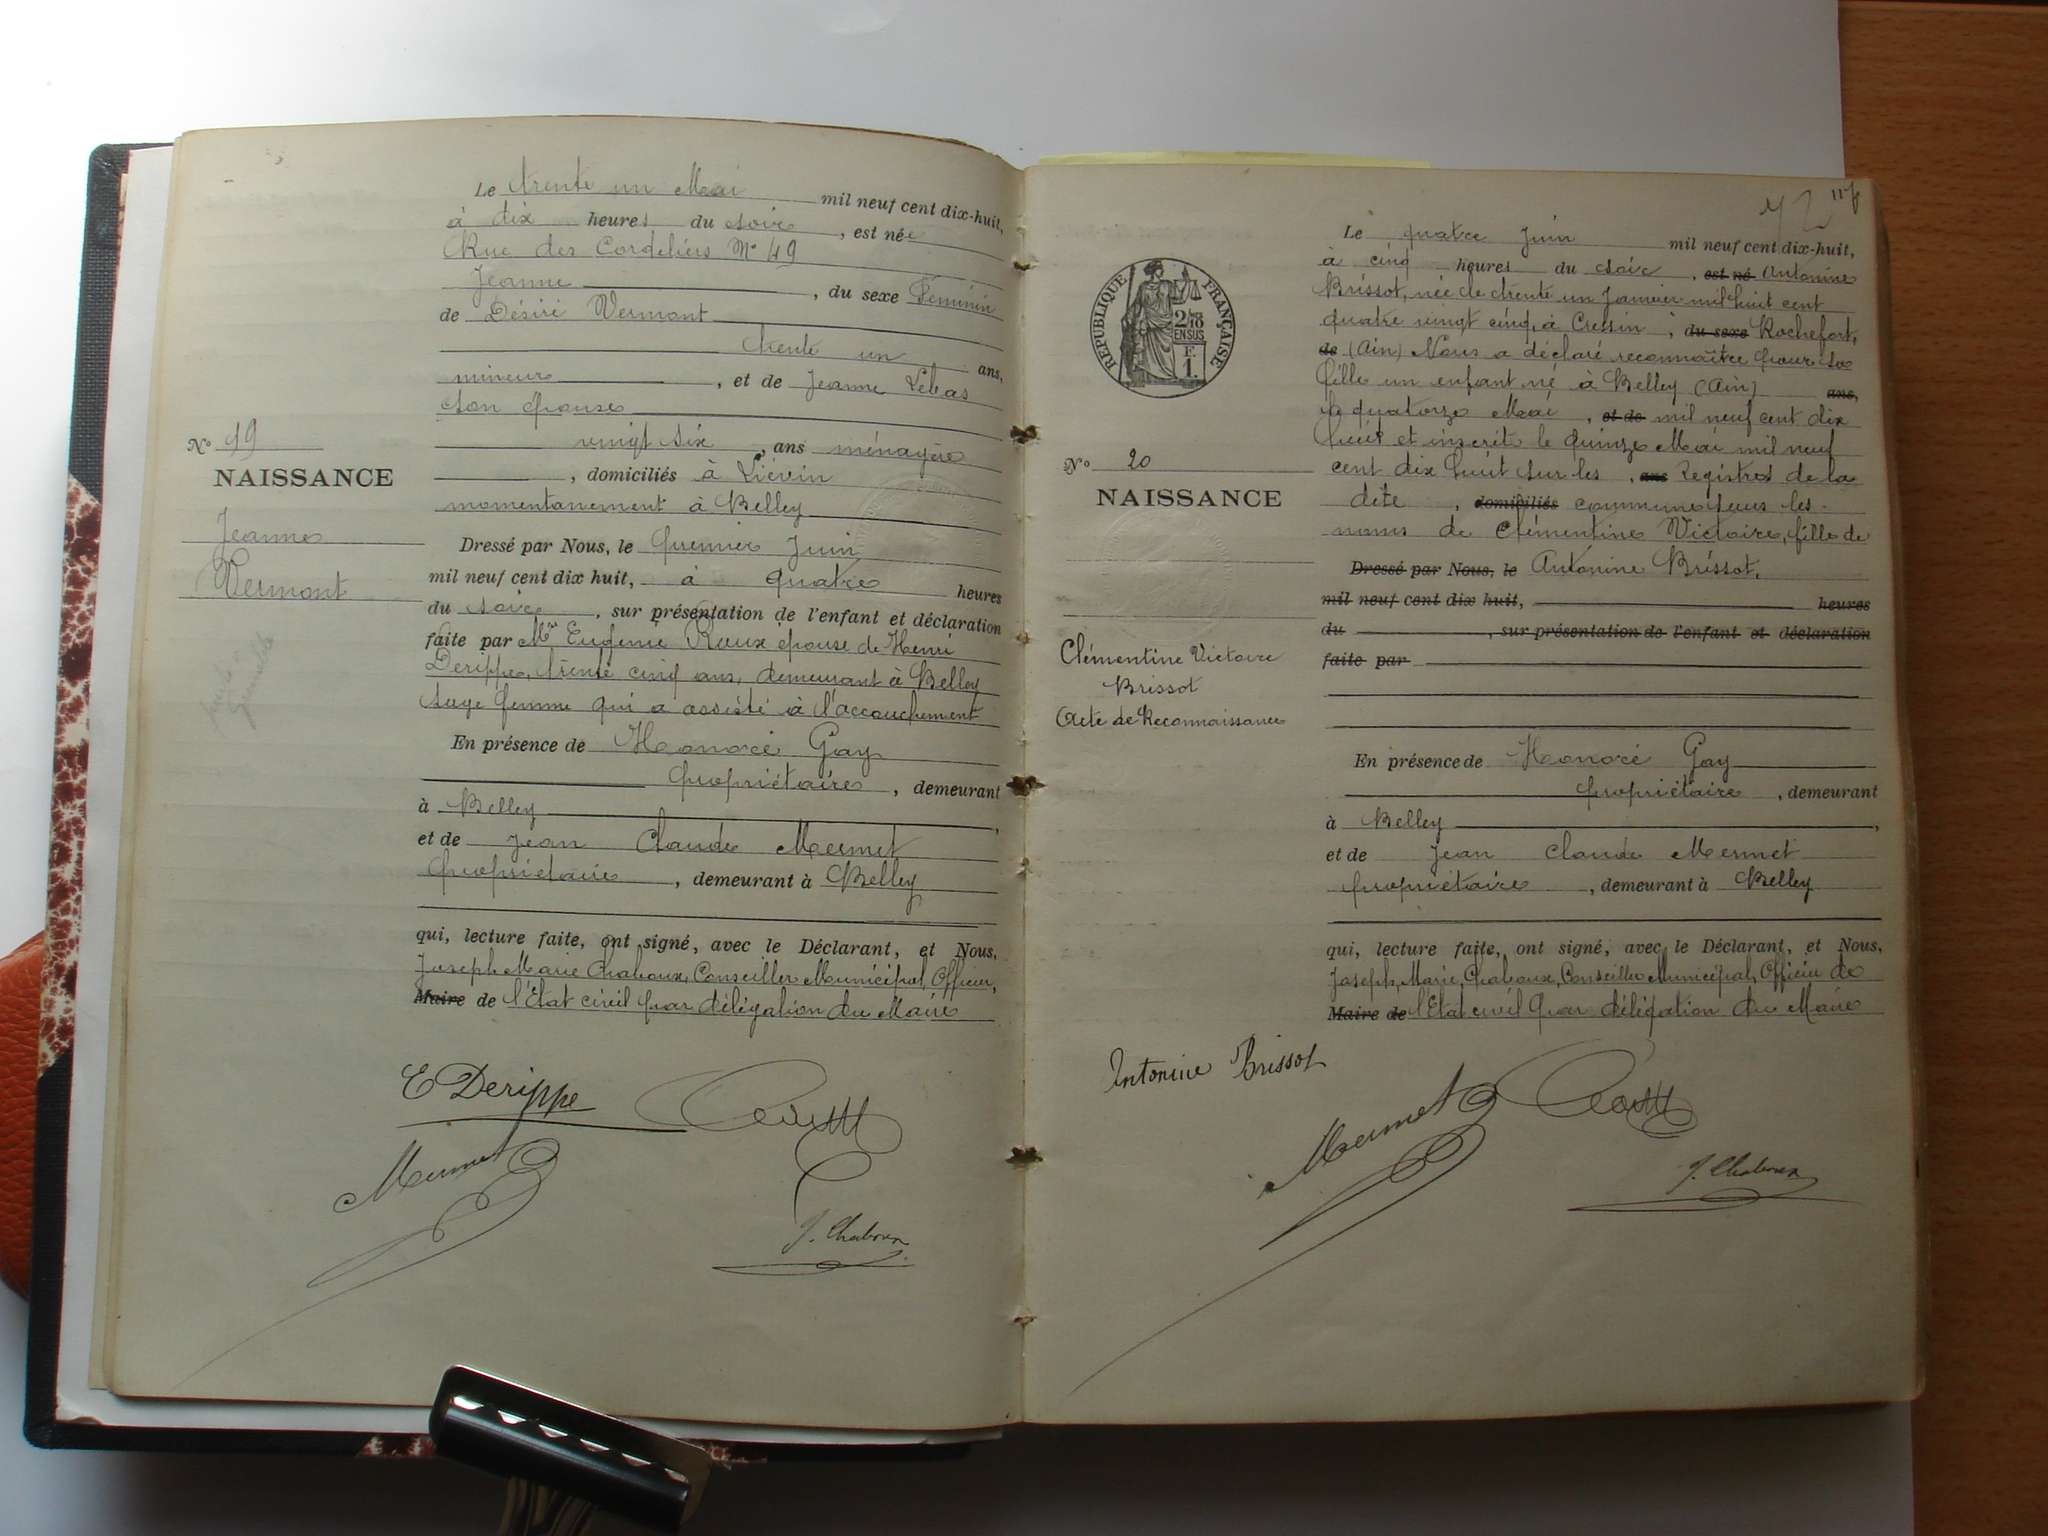 Le trente un Mai mil neuf cent dix-huit,
à dix heures du soir, est née
Rue des Cordeliers No 49
Jeanne, du sexe Féminin
de Désiré Vermont
trente un ans,
mineur, et de Jeanne Lebas
son épouse
vingt six, ans ménagère
, domiciliés à Liévin
momentanement à Belley
No 19
NAISSANCE
Jeanne
Vermont
Dressé par Nous, le premier Juin
mil neuf cent dix huit, à quatre heures
du soir, sur présentation de l'enfant et déclaration
faite par Me Eugénie Roux épouse de Henri
Derippe, trente cinq ans, demeurant à Belley
sage femme qui a assisté à l'accouchement
En présence de Honoré Gay
propriétaire, demeurant
à Belley,
et de Jean Claude Mermet
propriétaire, demeurant à Belley
qui, lecture faite, ont signé, avec le Déclarant, et Nous,
Joseph Marie Chaboux, Conseiller Municipal, Officier,
Maire de l'Etat civil par délégation du Maire
E Derippe
Mermet
J. Chaboux
72
RÉPUBLIQUE FRANÇAISE
2/10
EN SUS
F.
1.
Le quatre Juin mil neuf cent dix-huit,
à cinq heures du soir, est né Antonine
Brissot, née le trente un Janvier mil huit cent
quatre vingt cinq, à Cressin, du sexe Rochefort,
de (Ain) Nous a déclaré reconnaître pour sa
fille un enfant né à Belley (Ain) ans,
le quatorze Mai, et de mil neuf cent dix
huit et inscrite le quinze Mai mil neuf
cent dix huit sur les, ans registres de la
dite, domiciliés commune sous les
noms de Clémentine Victoire, fille de
Dressé par Nous, le Antonine Brissot,
mil neuf cent dix huit, heures
du, sur présentation de l'enfant et déclaration
faite par
No 20
NAISSANCE
Clémentine Victoire
Brissot
Acte de Reconnaissance
En présence de Honoré Gay
propriétaire, demeurant
à Belley,
et de Jean Claude Mermet
propriétaire, demeurant à Belley
qui, lecture faite, ont signé, avec le Déclarant, et Nous,
Joseph, Marie, Chaboux, Conseiller Municipal, Officier de
Maire de l'Etat civil par délégation du Maire
Antonine Brissot
Mermet
J. Chaboux